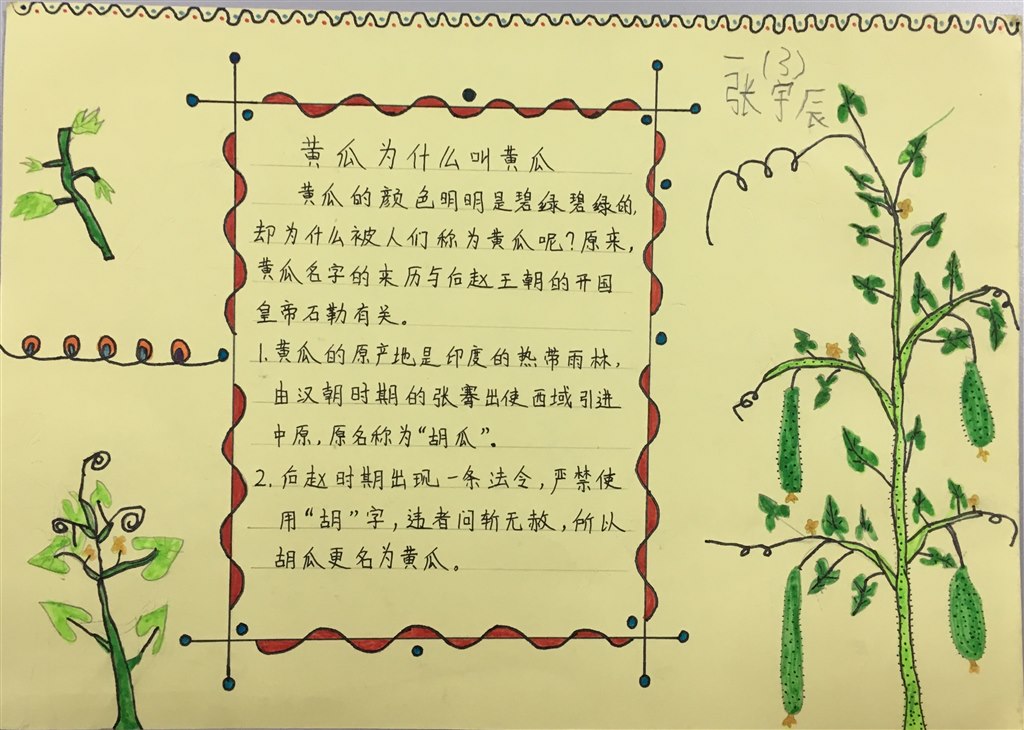 一(3)
张宇辰
黄瓜为什么叫黄瓜
黄瓜的颜色明明是碧绿碧绿的,
却为什么被人们称为黄瓜呢?原来,
黄瓜名字的来历与后赵王朝的开国
皇帝石勒有关。
1.黄瓜的原产地是印度的热带雨林,
由汉朝时期的张骞出使西域引进
中原,原名称为“胡瓜”。
2.后赵时期出现一条法令,严禁使
用“胡”字,违者问斩无赦,所以
胡瓜更名为黄瓜。